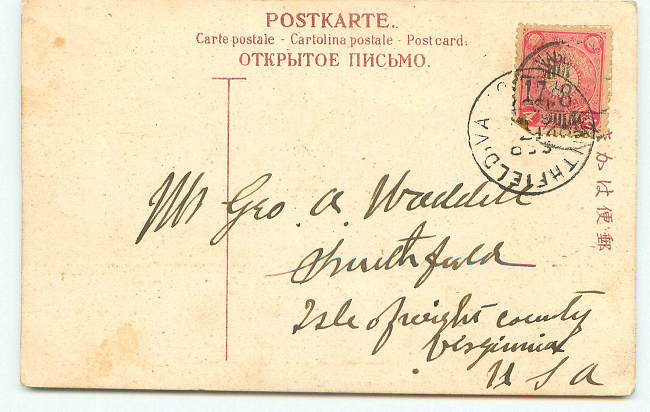 POSTKARTE.
Carte postale - Cartolina postale - Post card.
ОТКРЫТОЕ ПИСЬМО.
17.8
THFIELD.VA
郵便はかき
Mr Geo. A. Waddill
Smithfield
Isle of wight county
Virginnia
U S A